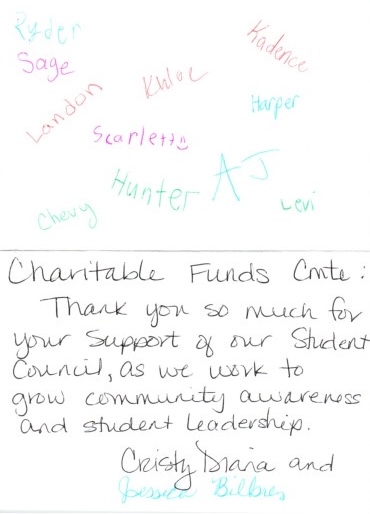 Ryder
Kadence
Sage
Khloe
Landon
Harper
Scarlett
Hunter
AJ
Levi
Chevy
Charitable Funds Cmte:
Thank you so much for
your support of our Student
Council, as we work to
grow community awareness
and student leadership.
Cristy Diaria and
Jessica